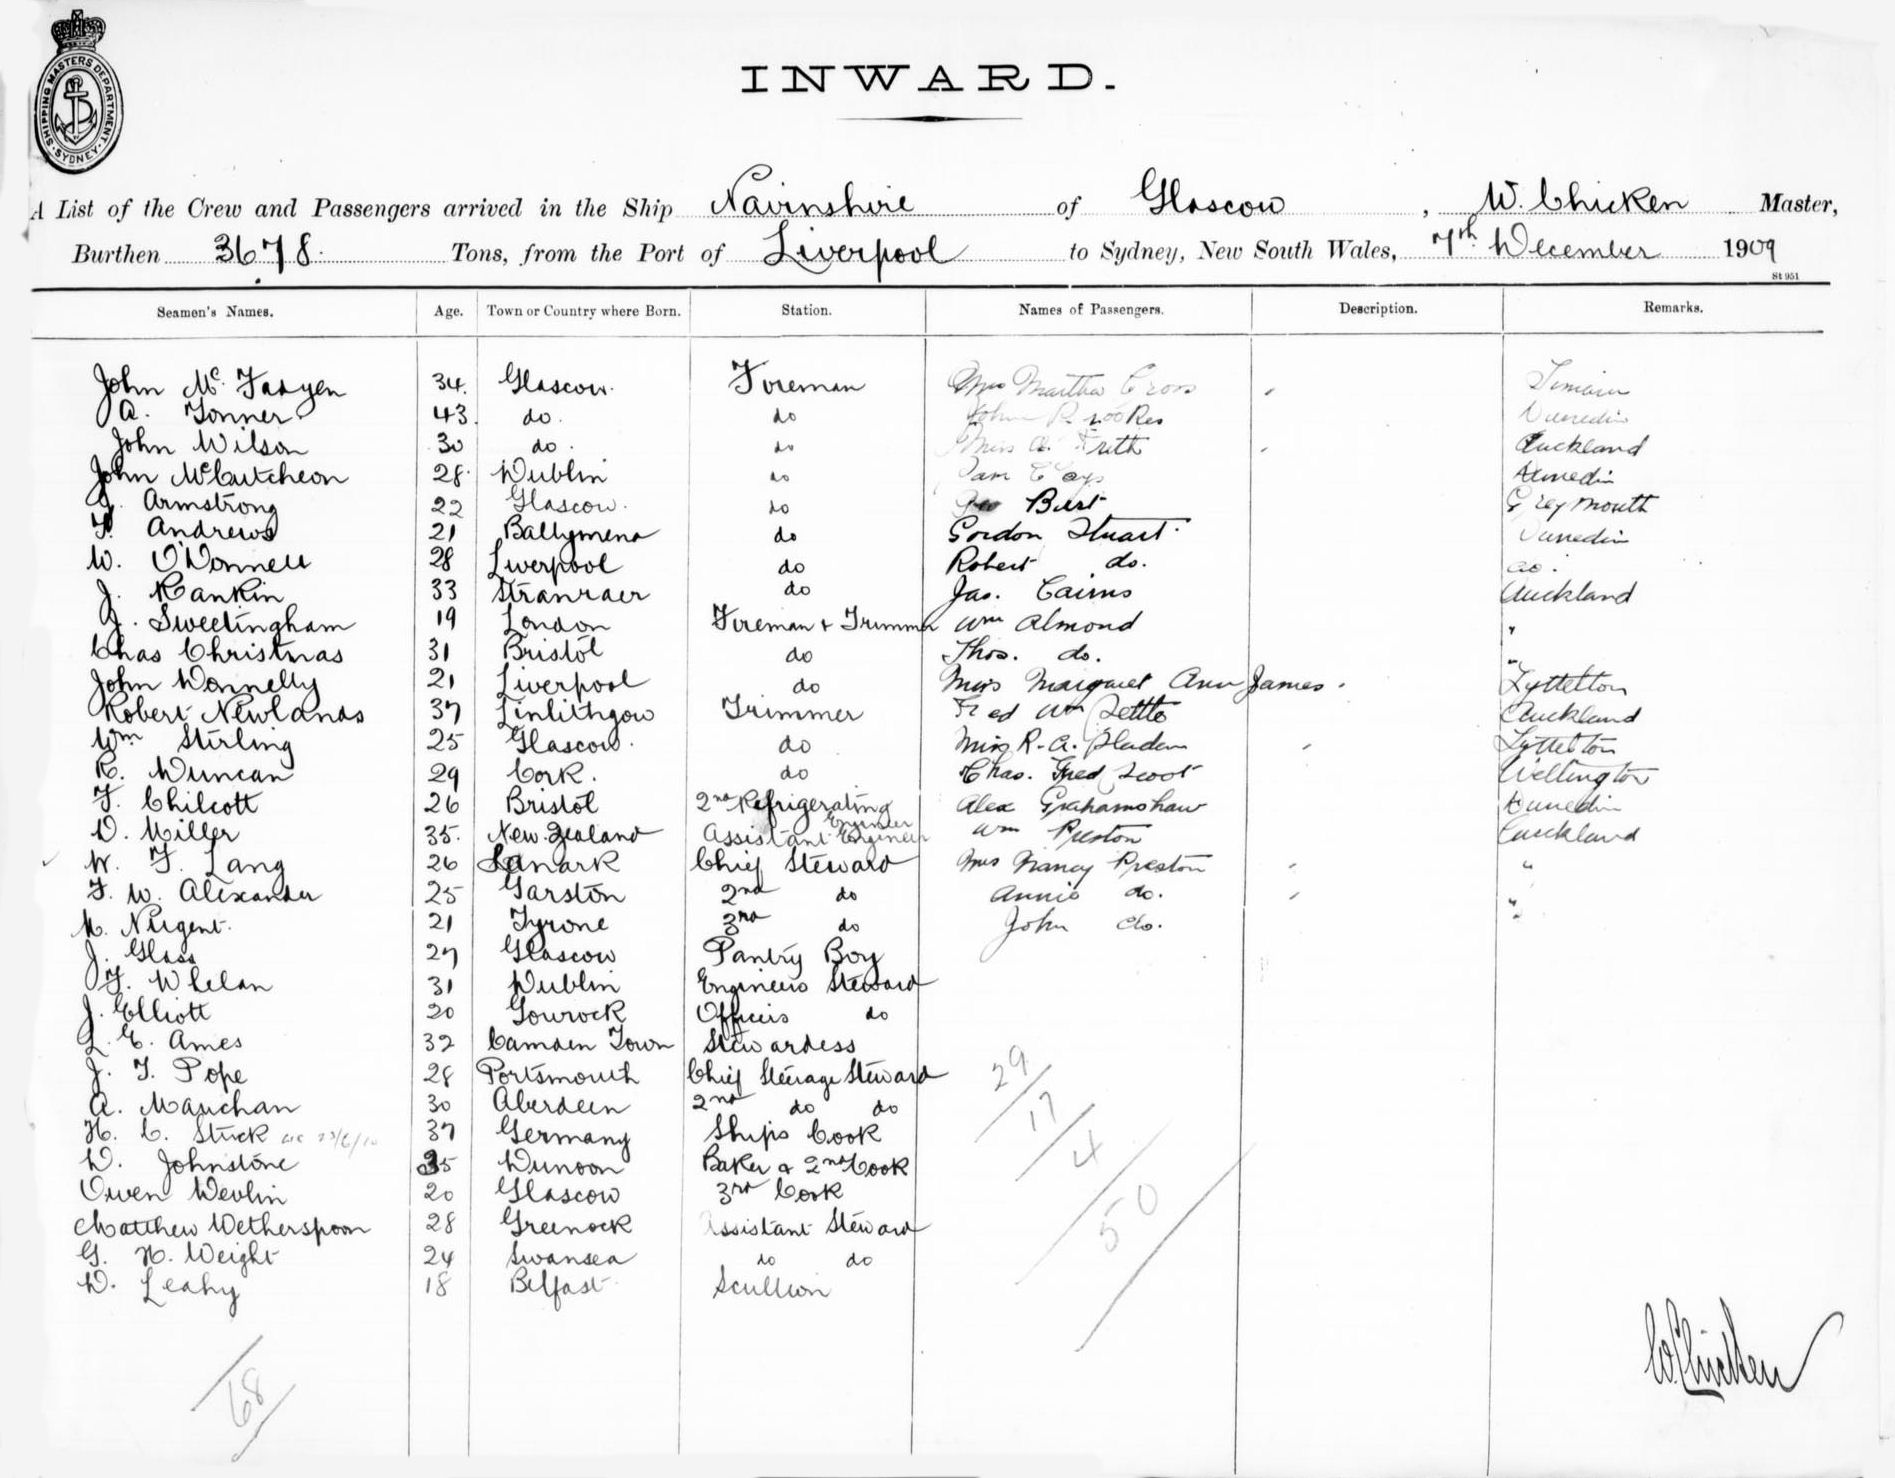 SHIPPING MASTERS DEPARTMENT. SYDNEY.
INWARD.
A List of the Crew and Passengers arrived in the Ship Nairnshire of Glascow, W. Chicken Master,
Burthen 3678 Tons, from the Port of Liverpool to Sydney, New South Wales, 7th December 1909
St 951
Seamen's Names. Age. Town or Country where Born. Station. Names of Passengers. Description. Remarks.
John Mc Fadyen 34. Glascow. Fireman Mrs Martha Cross Timaru
A. Tonner 43. do. do John Dunedin
John Wilson 30 do. do Miss Frith Auckland
John McCutcheon 28. Dublin do Dunedin
Armstrong 22 Glascow. do Geo Burt Greymouth
Andrews 21 Ballymena do Gordon Stuart Dunedin
W. O'Donnell 28 Liverpool do Robert do. do.
J. Rankin 33 Stranraer do Jas. Cairns Auckland
J. Sweetingham 19 London Fireman + Trimmer Wm Almond "
Chas Christmas 31 Bristol do Thos. do. "
John Donnelly 21 Liverpool do Miss Margaret Ann James. Lyttelton
Robert Newlands 37 Linlithgow Trimmer Fred Wm Settle Auckland
Wm Stirling 25 Glascow. do Miss R. A. Sladen Lyttelton
R. Duncan 29 Cork. do Chas. Fred Scoot Wellington
F. Chilcott 26 Bristol 2nd Refrigerating Engineer Alex Grahamshaw Dunedin
D. Miller 35. New Zealand Assistant Engineer Wm Preston Auckland
W. F. Lang 26 Lanark Chief Steward Mrs Nancy Preston "
F. W. Alexander 25 Garston 2nd do Annie do. "
M. Nugent. 21 Tyrone 3rd do John do.
J. Glass 27 Glascow Pantry Boy
F. Whelan 31 Dublin Engineers Steward
J. Elliott 20 Gourock Officers do
L. E. Ames 32 Camden Town Stewardess
J. T. Pope 28 Portsmouth Chief Steerage Steward
A. Mauchan 30 Aberdeen 2nd do do
H. C. Stuck 37 Germany Ships Cook
D. Johnstone 35 Dunoon Baker & 2nd Cook
Owen Devlin 20 Glascow 3rd Cook
Matthew Wetherspoon 28 Greenock Assistant Steward
G. H. Weight 24 Swansea do do
D. Leahy 18 Belfast Scullion
29
17
4
50
68
W. Chicken